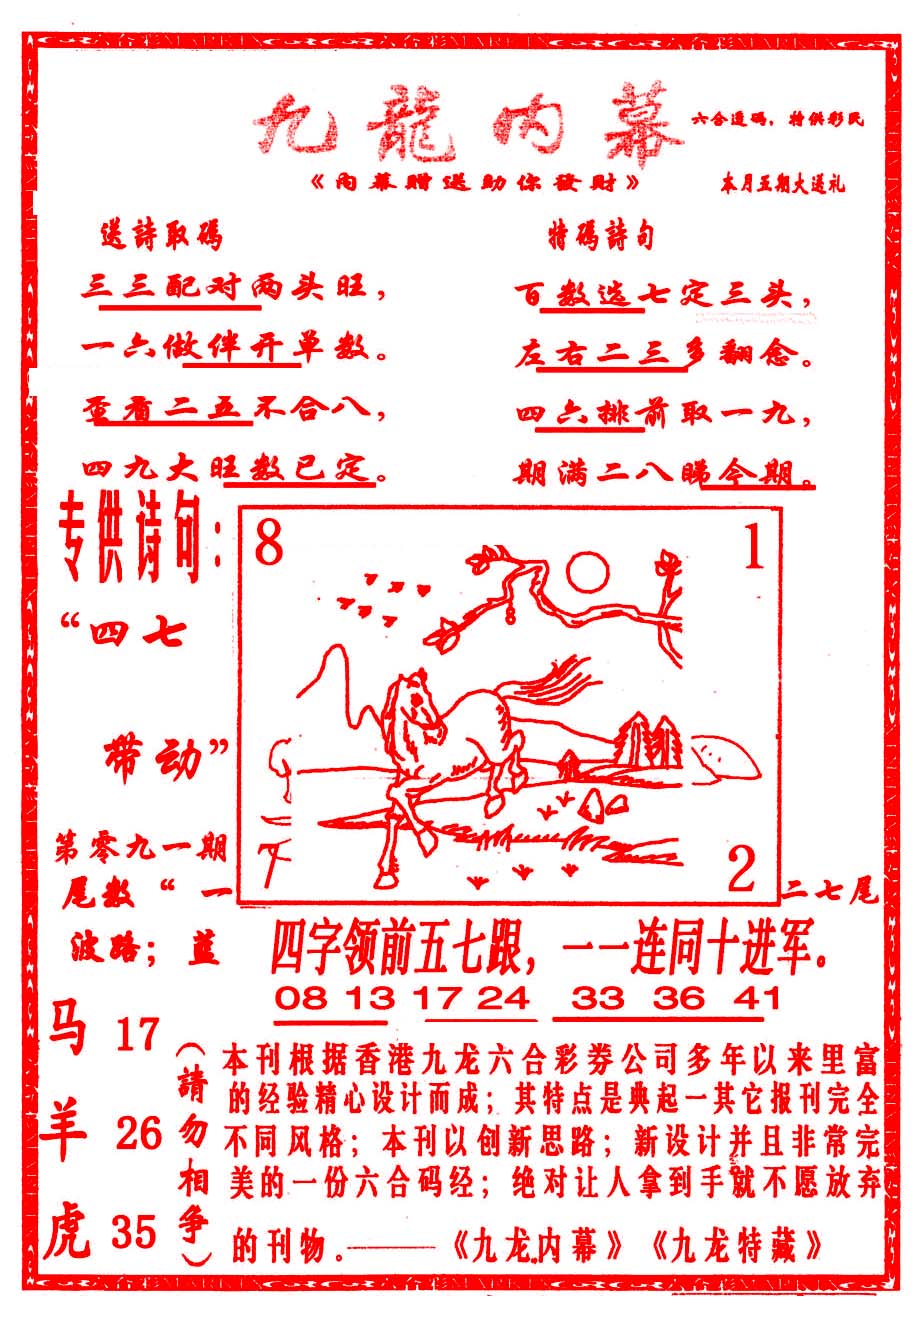 九龍内幕
六合透码，特供彩民
《内幕赠送助你發財》
本月五期大送礼
送詩取碼
三三配对两头旺，
一六做伴开单数。
查看二五不合八，
四九大旺数已定。
特碼詩句
百数选七定三头，
左右二三多翻念。
四六排前取一九，
期满二八睇今期。
专供诗句：
“四七
带动”
第零九一期
尾数“一
波路；蓝
8
1
7
2
二七尾
四字领前五七跟，一一连同十进军。
08 13 17 24 33 36 41
马 17
羊 26
虎 35
（請勿相争）
本刊根据香港九龙六合彩券公司多年以来里富
的经验精心设计而成；其特点是典起一其它报刊完全
不同风格；本刊以创新思路；新设计并且非常完
美的一份六合码经；绝对让人拿到手就不愿放弃
的刊物。——《九龙内幕》《九龙特藏》